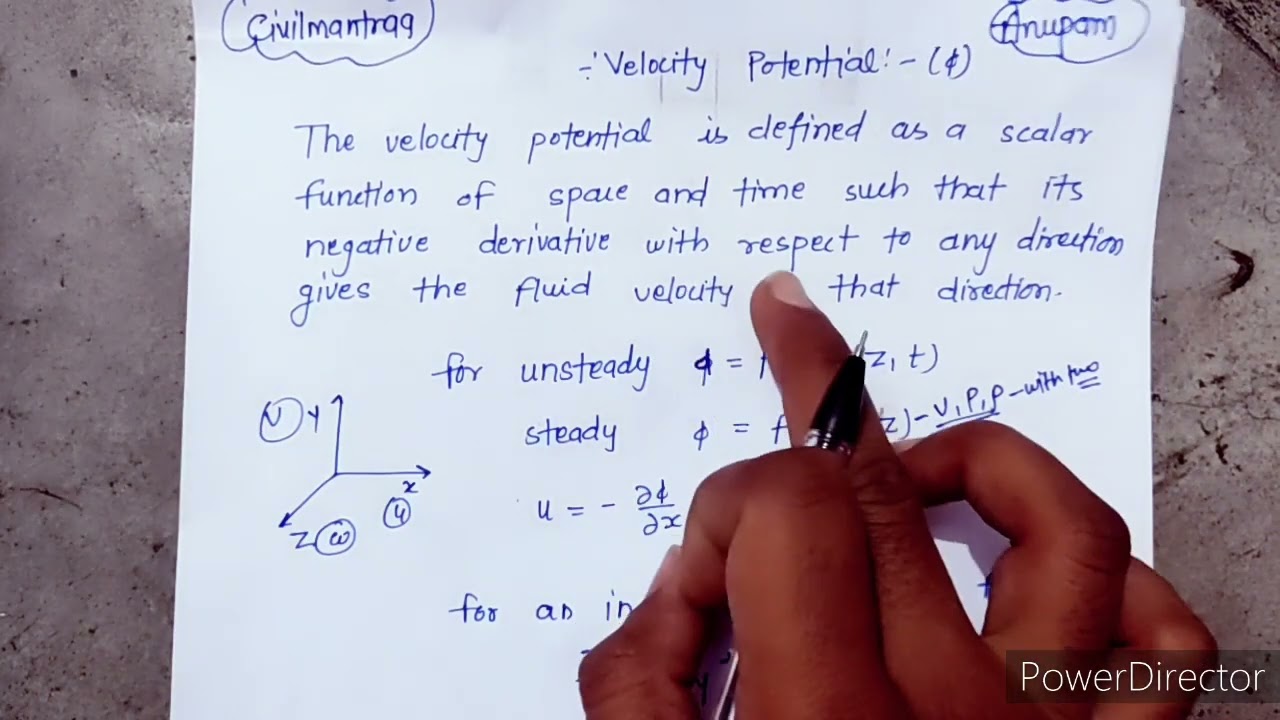 Civilmantraa
Anupam
÷ Velocity Potential :- (ϕ)
The velocity potential is defined as a scalar
function of space and time such that its
negative derivative with respect to any direction
gives the fluid velocity that direction.
for unsteady ϕ = z, t)
steady ϕ = f z) - V, P, ρ - with
V Y
x
u
Z w
u = - ∂ϕ/∂x
for an in
PowerDirector